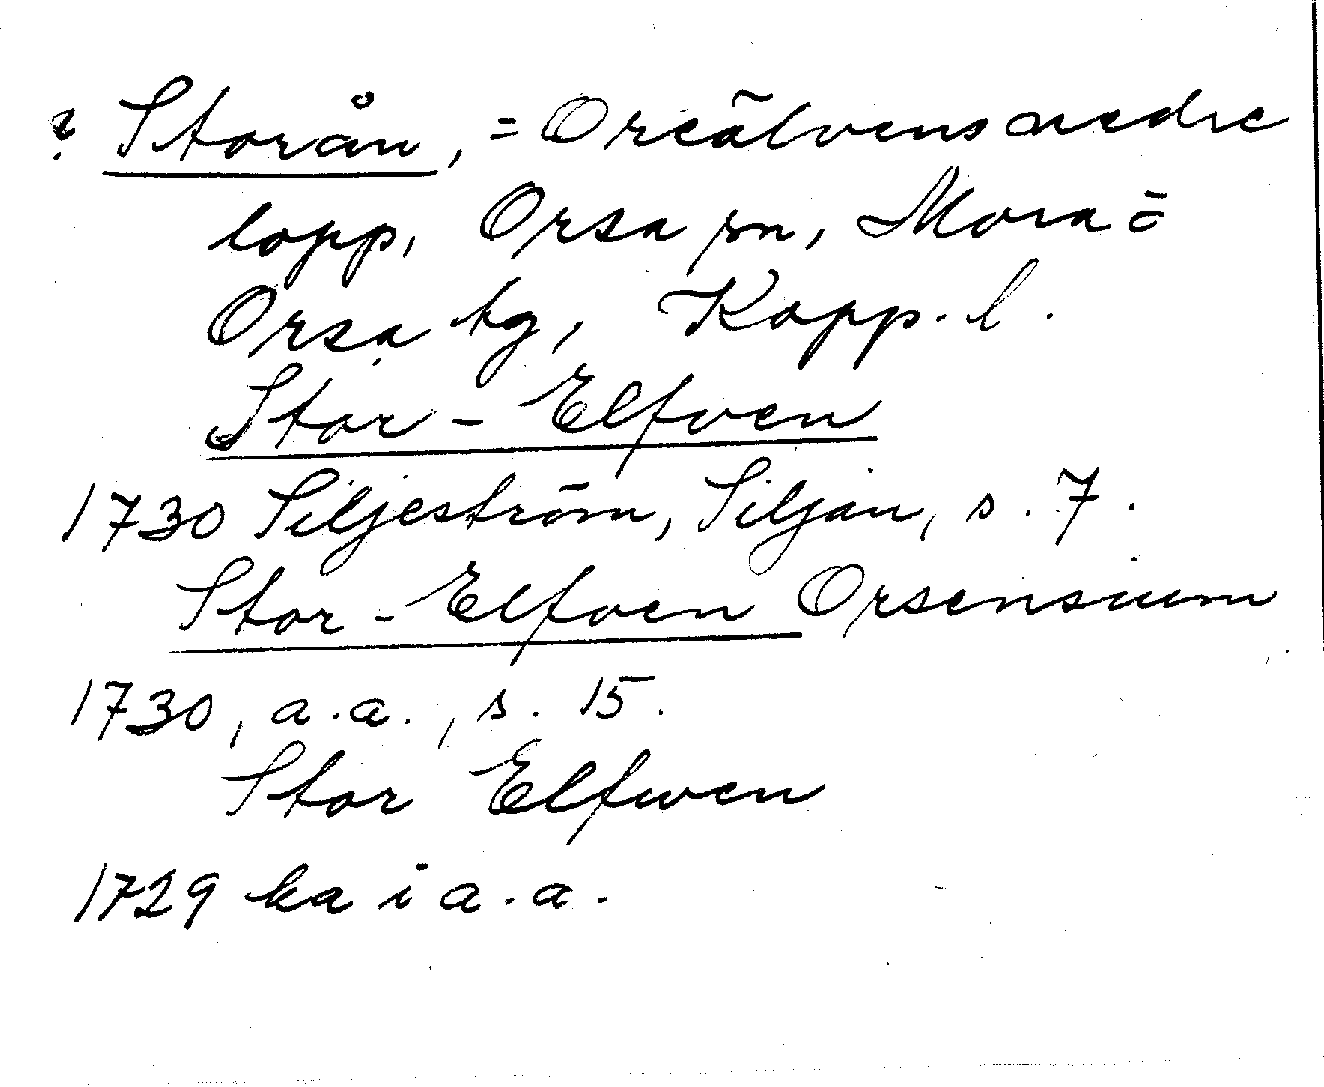 ? Storån, = Oreälvens nedre
lopp, Orsa sn, Mora o
Orsa tg, Kopp. l.
Stor-Elfven
1730 Siljeström, Siljan, s. 7.
Stor-Elfven Orsensium
1730, a.a., s. 15.
Stor Elfwen
1729 ka i a.a.